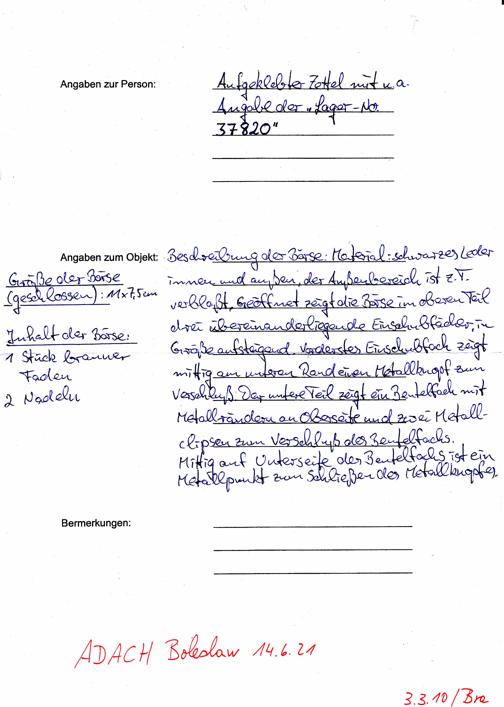 Angaben zur Person:
Aufgeklebter Zettel mit u.a.
Angabe der "Lager-No.
37820"
Angaben zum Objekt:
Beschreibung der Börse: Material: schwarzes Leder
innen und außen, der Außenbereich ist z.T.
verblaßt. Geöffnet zeigt die Börse im oberen Teil
drei übereinanderliegende Einschubfächer, in
Größe aufsteigend. Vorderstes Einschubfach zeigt
mittig am unteren Rand einen Metallknopf zum
Verschluß. Der untere Teil zeigt ein Beutelfach mit
Metallrändern an Oberseite und zwei Metall-
clipsen zum Verschluß des Beutelfachs.
Mittig auf Unterseite des Beutelfachs ist ein
Metallpunkt zum Schließen des Metallknopfes.
Größe der Börse
(geschlossen): 11x7,5cm
Inhalt der Börse:
1 Stück brauner
Faden
2 Nadeln
Bermerkungen:
ADACH Boleslaw 14.6.21
3.3.10/Bra